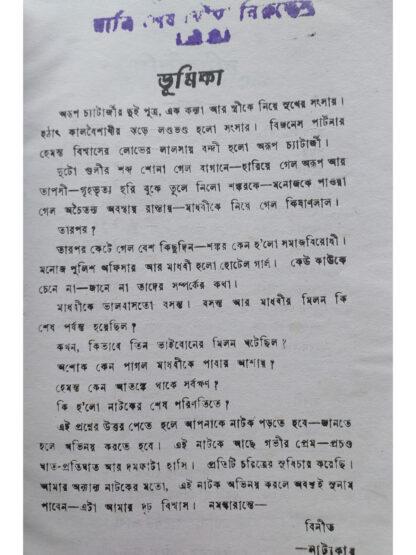 আমি শেষ
ভূমিকা
অরূপ চ্যাটার্জীর দুই পুত্র, এক কন্যা আর স্ত্রীকে নিয়ে সুখের সংসার।
হঠাৎ কালবৈশাখীর ঝড়ে লণ্ডভণ্ড হলো সংসার। বিজনেস পার্টনার
হেমন্ত বিশ্বাসের লোভের লালসায় বন্দী হলো অরূপ চ্যাটার্জী।
দুটো গুলীর শব্দ শোনা গেল বাগানে—হারিয়ে গেল অরূপ আর
তাপসী—গৃহভৃত্য হরি বুকে তুলে নিলো শঙ্করকে—মনোজকে পাওয়া
গেল অচৈতন্য অবস্থায় রাস্তায়—মাধবীকে নিয়ে গেল কিষাণলাল।
তারপর?
তারপর কেটে গেল বেশ কিছুদিন—শঙ্কর কেন হ'লো সমাজবিরোধী।
মনোজ পুলিশ অফিসার আর মাধবী হলো হোটেল গার্ল। কেউ কাউকে
চেনে না—জানে না তাদের সম্পর্কের কথা।
মাধবীকে ভালবাসতো বসন্ত। বসন্ত আর মাধবীর মিলন কি
শেষ পর্যন্ত হয়েছিল?
কখন, কিভাবে তিন ভাইবোনের মিলন ঘটেছিল?
অশোক কেন পাগল মাধবীকে পাবার আশায়?
হেমন্ত কেন আতঙ্কে থাকে সর্বক্ষণ?
কি হ'লো নাটকের শেষ পরিণতিতে?
এই প্রশ্নের উত্তর পেতে হলে আপনাকে নাটক পড়তে হবে—জানতে
হলে অভিনয় করতে হবে। এই নাটকে আছে গভীর প্রেম—প্রচণ্ড
ঘাত-প্রতিঘাত আর দমফাটা হাসি। প্রতিটি চরিত্রের সুবিচার করেছি।
আমার অন্যান্য নাটকের মতো, এই নাটক অভিনয় করলে অবশ্যই সুনাম
পাবেন—এটা আমার দৃঢ় বিশ্বাস। নমস্কারান্তে—
বিনীত
—নাট্যকার